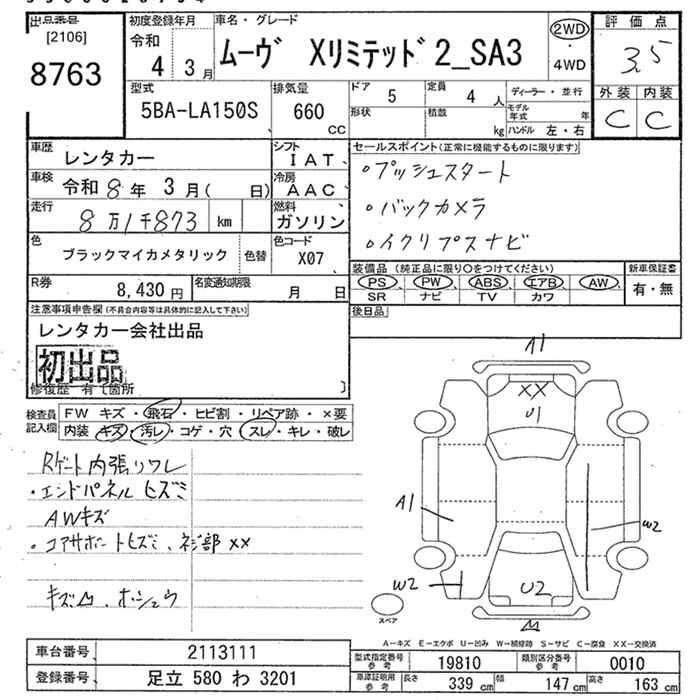 出品番号
[2106]
8763
初度登録年月
令和
4 3月
車名・グレード
ムーヴ Xリミテッド2_SA3
2WD
・
4WD
評価点
3.5
外装 内装
C C
型式
5BA-LA150S
排気量
660
CC
ドア 5
定員 4人
形状
積数 kg
ディーラー・並行
モデル年式 年
ハンドル 左・右
車歴 レンタカー
シフト IAT
車検 令和8年3月( 日)
冷房 AAC
走行 8万1千873 km
燃料 ガソリン
色 ブラックマイカメタリック 色替
色コード X07
R券 8,430円
名変通知期限 月 日
セールスポイント(正常に機能するものに限ります)
・プッシュスタート
・バックカメラ
・イクリプスナビ
装備品(純正品に限り○をつけてください)
PS PW ABS エアB AW
SR ナビ TV カワ
新車保証書
有・無
後日品
注意事項申告欄(不具合内容等は具体的に記入して下さい)
レンタカー会社出品
初出品
修復歴 有〔箇所 〕
検査員
記入欄
FW キズ・飛石・ヒビ割・リペア跡・×要
内装 キズ・汚レ・コゲ・穴・スレ・キレ・破レ
Rゲート内張リワレ
・エンドパネル ヒズミ
AWキズ
・コアサポートヒズミ、ネジ部××
キズ凹、ホシュウ
A1
XX
U1
A1
W2
W2
U2
スペア
A-キズ E-エクボ U-凹み W-補修跡 S-サビ C-腐食 XX-交換済
車台番号 2113111
登録番号 足立 580 わ 3201
型式指定番号
参考
19810
類別区分番号
参考
0010
車庫証明用
参考
長さ 339 cm
幅 147 cm
高さ 163 cm